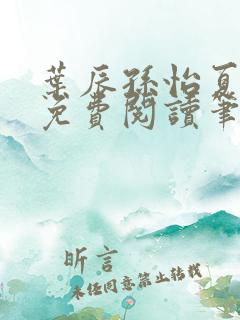 葉辰孫怡夏
免費閱讀筆
昕言
未經同意禁止转载